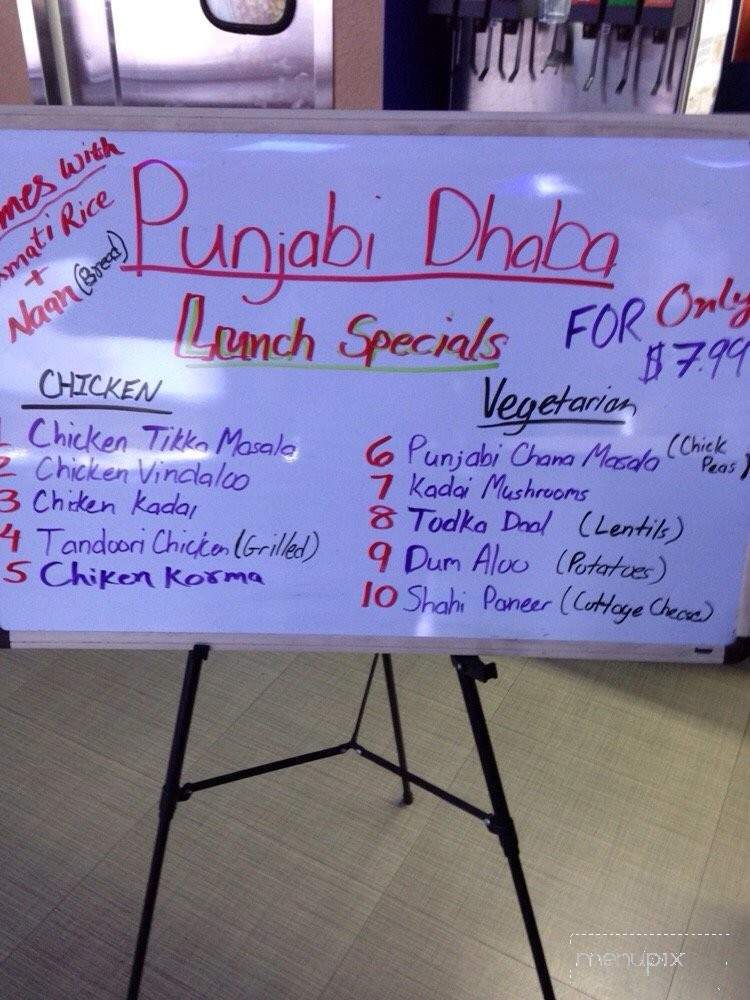 mes with
mati Rice
+
Naan (Bread)
Punjabi Dhaba
Lunch Specials
FOR Only
$7.99
CHICKEN
1 Chicken Tikka Masala
2 Chicken Vindaloo
3 Chicken Kadai
4 Tandoori Chicken (Grilled)
5 Chiken Korma
Vegetarian
6 Punjabi Chana Masala (Chick Peas)
7 Kadai Mushrooms
8 Tadka Daal (Lentils)
9 Dum Aloo (Potatoes)
10 Shahi Paneer (Cottage Cheese)
menupix